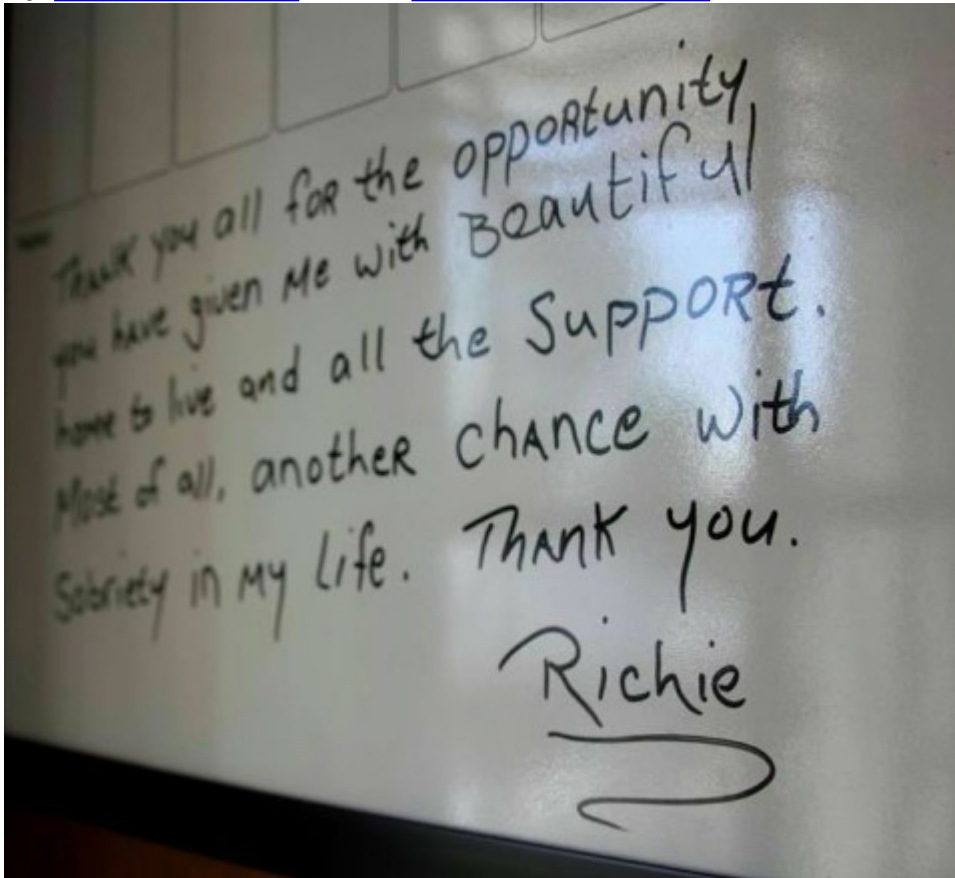 Thank you all for the opportunity
you have given Me with Beautiful
home to live and all the Support.
Most of all, another chance with
Sobriety in My life. Thank you.
Richie